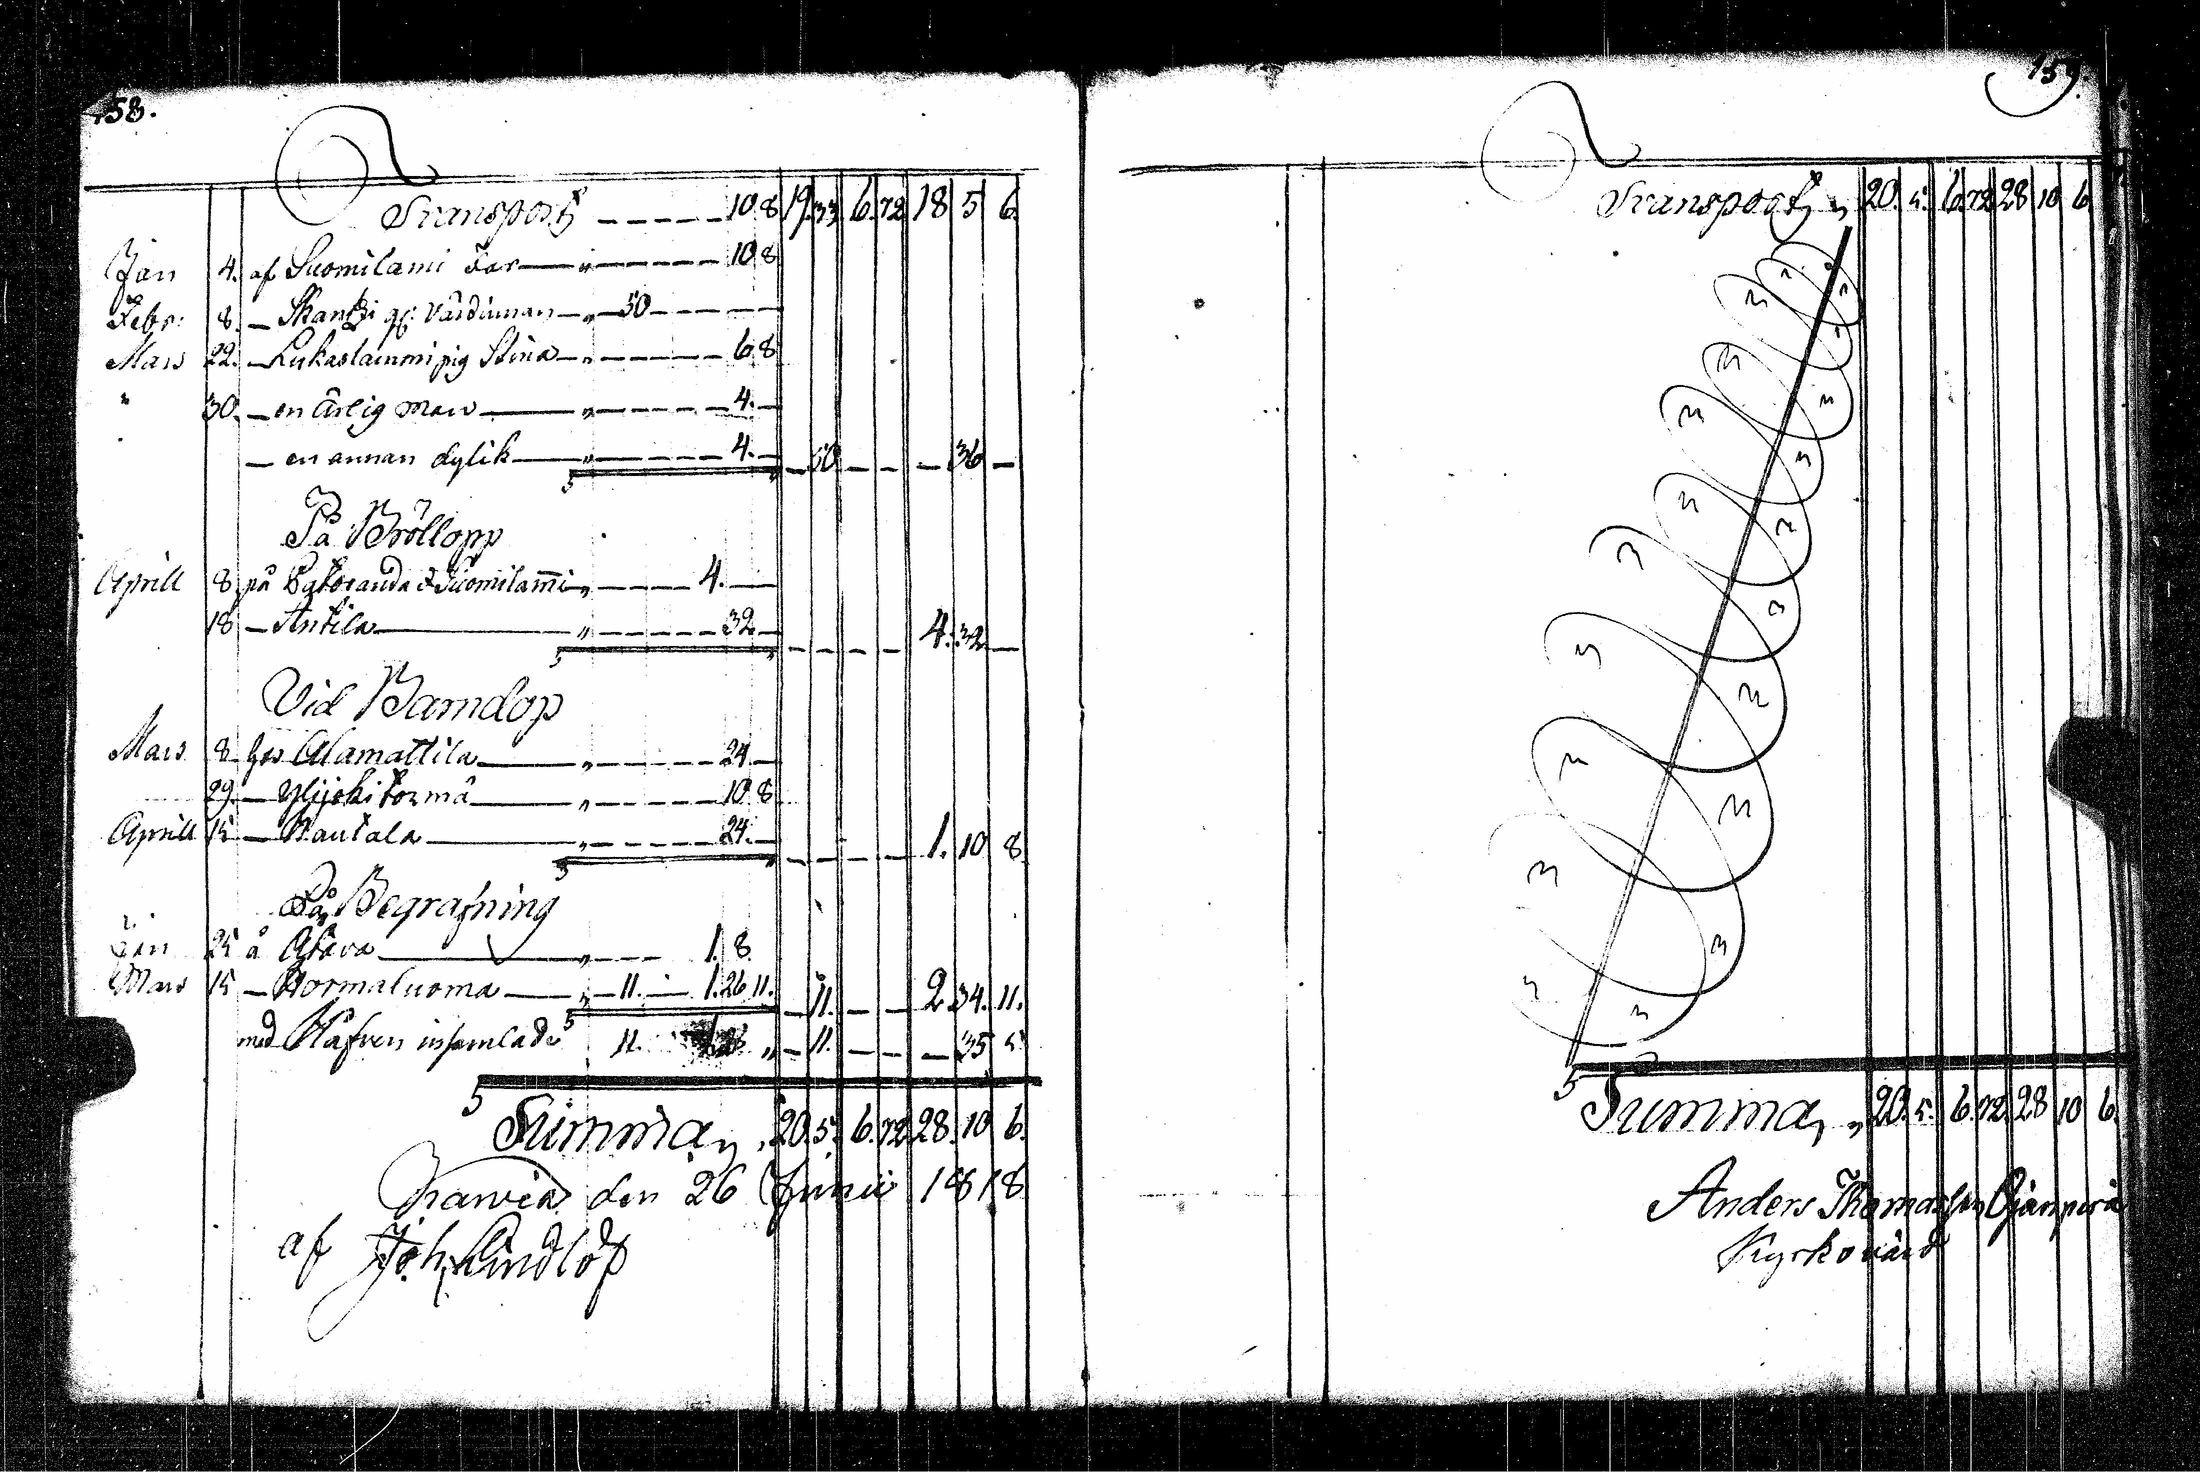 158.
Transport 10 8 19. 33 6. 72 18 5 6.
Jan 4. af Suomilami Far " 10 8
Febr: 8. — Skantzi gl: Värdinnan " 50
Mars 22. — Lukaslammi pig Stina " 6 8
" 30. — en ärlig man " 4.
— en annan dylik " 4. — 50 — — — 36 —
På Bröllopp
Aprill 8 på Suomilammi " 4.
18 — Antila " 32 — — — — 4. 32 —
Vid Barndop
Mars 8 hos Alamattila " 24
29. — Ylijoki tormä " 10 8
Aprill 15 — Rautala " 24. — — — — 1. 10 8
På Begrafning
Jan 25 å Atava " 1. 8.
Mars 15 — Normaluoma " 11. — 1. 26 11. — 11. — — 2 34. 11.
med Håfven insamlade 11. " — 11. — — — 35 5
Summa 20. 5. 6. 72 28. 10 6.
Karvia den 26 Junii 1818
af Joh. Lindlöf
159.
Transport " 20. 5. 6. 72 28 10 6.
Summa " 20. 5. 6. 72. 28 10 6.
Anders Thomasson Ojanperä
Kyrkovärd